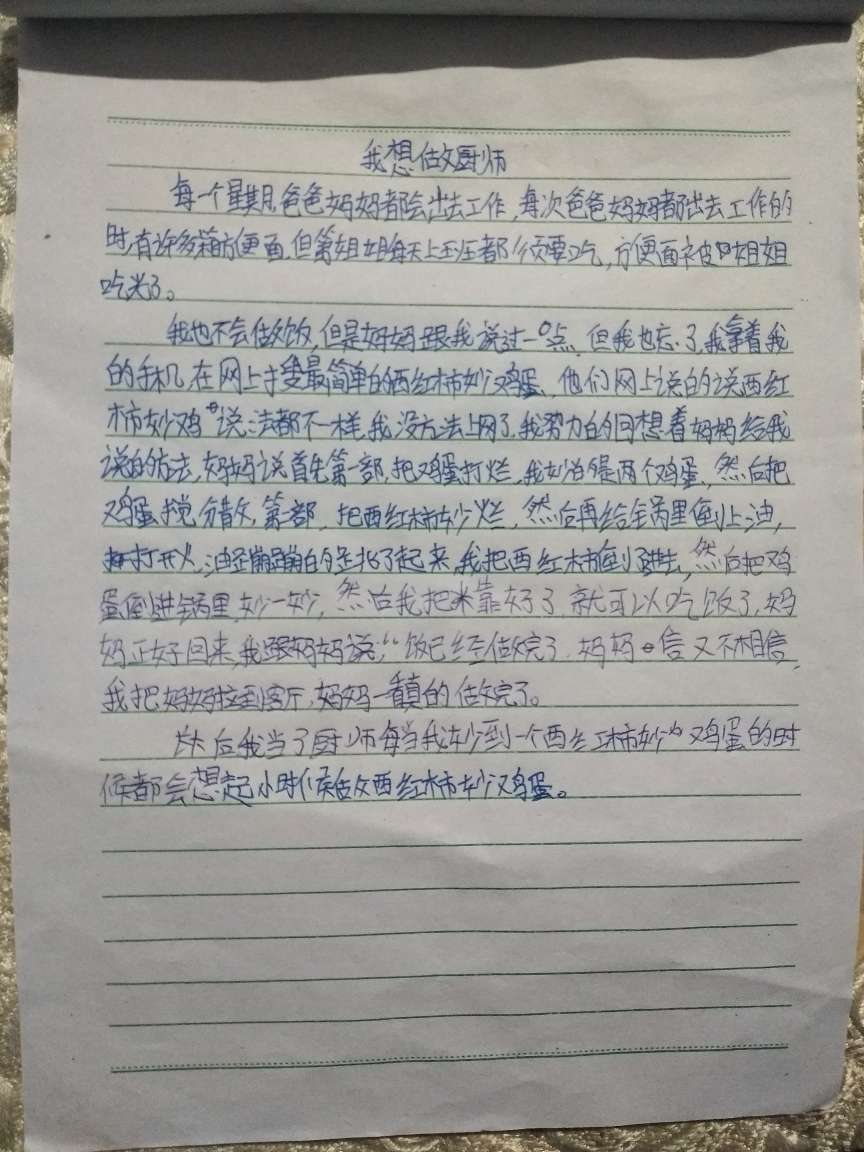 我想做厨师
每一个星期,爸爸妈妈都会出去工作,每次爸爸妈妈都出去工作的
时,有许多箱方便面,但第姐姐每天上午都必须要吃,方便面被姐姐
吃光了。
我也不会做饭,但是妈妈跟我说过一点,但我也忘了,我拿着我
的手机,在网上找最简单的西红柿炒鸡蛋,他们网上说的说西红
柿炒鸡 说法都不一样,我没方法上网了,我努力的回想着妈妈给我
说的方法,妈妈说首先第一部,把鸡蛋打烂,我 是两个鸡蛋,然后把
鸡蛋搅分散,第 部,把西红柿炒烂,然后再给锅里倒上油,
打开火,油 蹦蹦的 了起来,我把西红柿倒了进去,然后把鸡
蛋倒进锅里,炒一炒,然后我把米靠好了,就可以吃饭了,妈
妈正好回来,我跟妈妈说,“饭已经做完了,妈妈 信又不相信,
我把妈妈拉到客厅,妈妈一看真的做完了。
长大后我当了厨师每当我炒到一个西红柿炒鸡蛋的时
候都会想起小时候做西红柿炒鸡蛋。